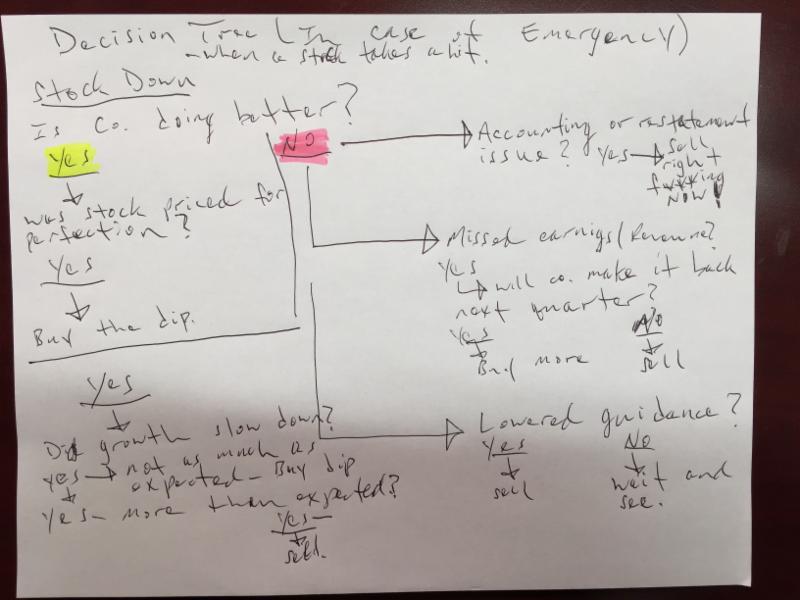 Decision Tree (In case of Emergency)
- when a stock takes a hit.
Stock Down
Is Co. doing better?
Yes
was stock priced for
perfection?
Yes
Buy the dip.
Yes
Did growth slow down?
Yes → not as much as
expected - Buy dip
Yes - more than expected?
Yes -
sell.
NO
Accounting or restatement
issue? Yes → Sell
right
f***king
NOW!
Missed earnigs/Revenue?
Yes
will co. make it back
next quarter?
Yes No
Buy more sell
Lowered guidance?
Yes No
sell wait and
see.